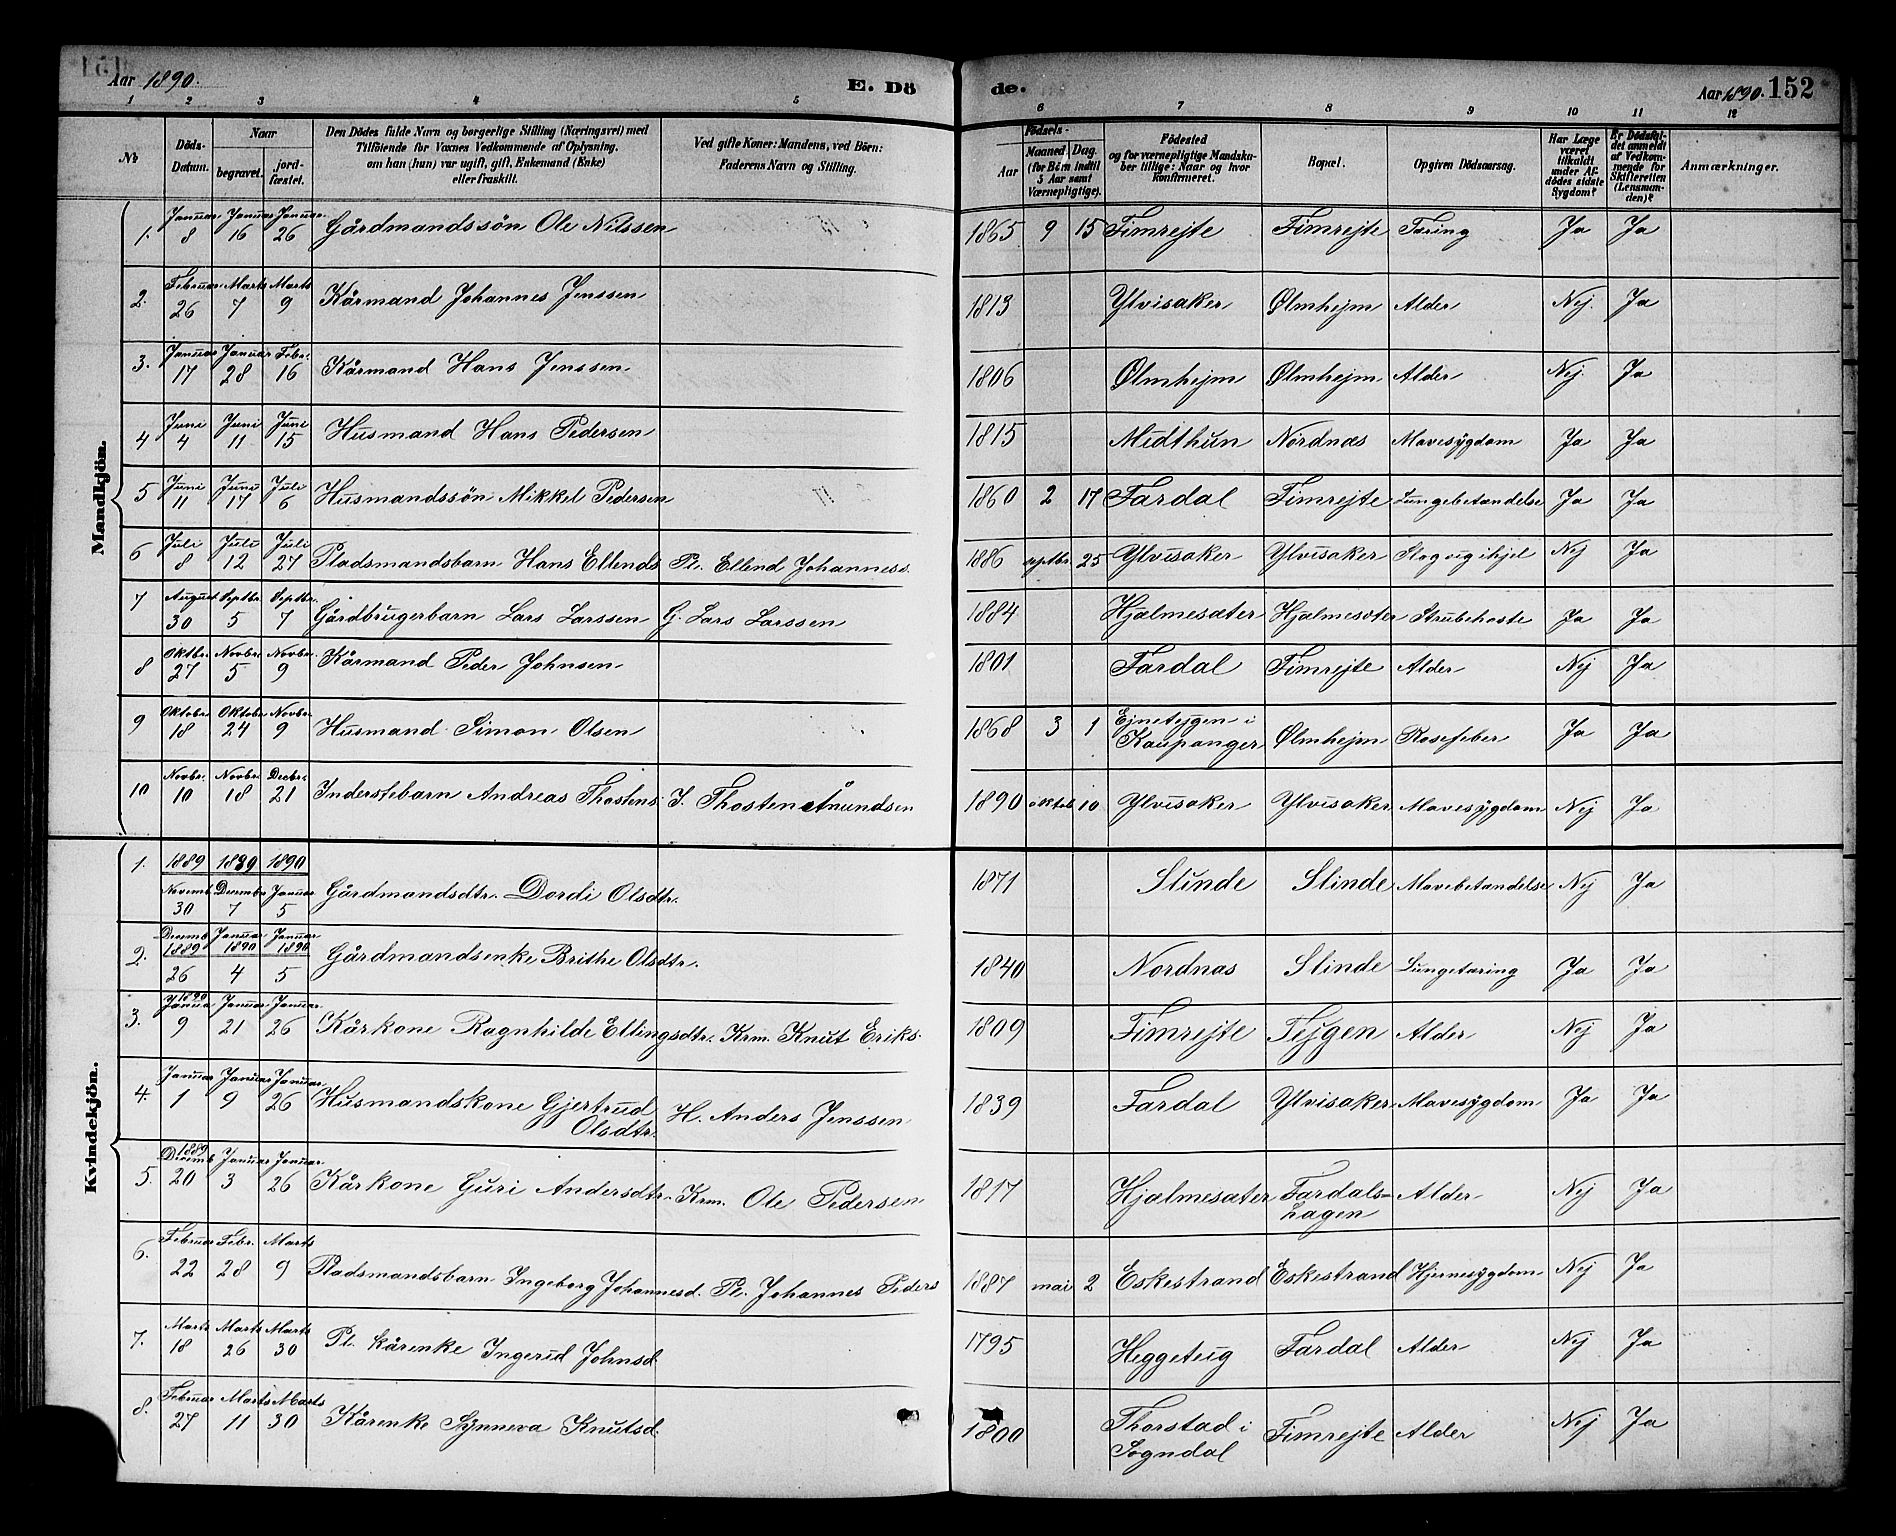 Aar 1890. E. Döde. Aar 1890. 152
1 2 3 4 5 6 7 8 9 10 11 12
№ | Döds-Datum. | Naar begravet. | Naar jordfæstet. | Den Dödes fulde Navn og borgerlige Stilling (Næringsvei) med Tilföiende for Voxnes Vedkommende af Oplysning, om han (hun) var ugift, gift, Enkemand (Enke) eller fraskilt. | Ved gifte Koner: Mandens, ved Börn: Faderens Navn og Stilling. | Födsels- Aar | Maaned | Dag. (for Börn indtil 5 Aar samt Værnepligtige). | Födested og for værnepligtige Mandskaber tillige: Naar og hvor konfirmeret. | Bopæl. | Opgiven Dödsaarsag. | Har Læge været tilkaldt under Afdödes sidste Sygdom? | Er Dödsfaldet anmeldt af Vedkommende for Skifteretten (Lensmanden)? | Anmærkninger.
Mandkjön.
1. Januar 8 | Januar 16 | Januar 26 | Gårdmandssön Ole Nilssen | 1865 | 9 | 15 | Fimrejte | Fimrejte | Tæring | Ja | Ja
2. Februar 26 | Marts 7 | Marts 9 | Kårmand Johannes Jenssen | 1813 | Ylvisaker | Ølmhejm | Alder | Nej. | Ja
3. Januar 17 | Januar 28 | Febr. 16 | Kårmand Hans Jenssen | 1806 | Ølmhejm | Ølmhejm | Alder | Nej. | Ja
4 Juni 4 | Juni 11 | Juni 15 | Husmand Hans Pedersen | 1815 | Midthun | Nordnæs | Mavesygdom | Ja | Ja
5 Juni 11 | Juni 17 | Juli 6 | Husmandssön Mikkel Pedersen | 1860 | 2 | 17 | Fardal | Fimrejte | Lungebetændelse | Ja | Ja
6 Juli 8 | Juli 12 | Juli 27 | Pladsmandsbarn Hans Ellends | Pl. Ellend Johanness. | 1886 | septbr | 25 | Ylvisaker | Ylvisaker | Slog sig ihjel | Nej | Ja
7 August 30 | Septbr. 5 | Septbr. 7 | Gårdbrugerbarn Lars Larssen | G. Lars Larssen | 1884 | Hjælmesæter | Hjælmesæter | Strubehoste | Ja | Ja
8 Oktbr. 27 | Novbr. 5 | Novbr. 9 | Kårmand Peder Johnsen | 1801 | Fardal | Fimrejte | Alder | Nej | Ja
9 Oktobr. 18 | Oktobr. 24 | Novbr. 9 | Husmand Simon Olsen | 1868 | 3 | 1 | Ejnetejgen i Kaupanger | Ølmhejm | Rosefeber | Ja | Ja
10 Novbr. 10 | Novbr. 18 | Decbr. 21 | Inderstebarn Andreas Thostens. | I. Thosten Åmundsen | 1890 | oktob | 10. | Ylvisaker | Ylvisaker | Mavesygdom | Nej | Ja
Kvindekjön.
1. 1889 Novemb. 30 | 1889 Decembr 7 | 1890 Januar 5 | Gårdmandsdtr. Dordi Olsdtr. | 1871 | Slinde | Slinde | Mavebetændelse | Nej | Ja
2. Decemb. 1889 26 | Januar 1890 4 | Januar 1890 5 | Gårdmandsenke Brithe Olsdtr. | 1840 | Nordnæs | Slinde | Lungetæring | Ja | Ja
3. 1890 Januar 9 | Januar 21 | Januar 26 | Kårkone Ragnhilde Ellingsdtr. | Krm. Knut Eriks. | 1809 | Fimrejte | Tejgen | Alder | Nej | Ja
4. Januar 1 | Januar 9 | Januar 26 | Husmandskone Gjertrud Olsdtr. | H. Anders Jenssen | 1839 | Fardal | Ylvisaker | Mavesygdom | Ja | Ja
5. 1889 Decemb 20 | Januar 3 | Januar 26 | Kårkone Guri Andersdtr. | Krm. Ole Pedersen | 1817 | Hjælmesæter | Fardals- Hagen | Alder | Nej | Ja
6. Februar 22 | Febr. 28 | Marts 9 | Pladsmandsbarn Ingeborg Johannesd. | Pl. Johannes Peders | 1887 | mai | 2 | Eskestrand | Eskestrand | Hjernesygdom | Nej | Ja
7. Marts 18 | Marts 26 | Marts 30 | Pl. kårenke Ingerid Johnsd. | 1795 | Heggeteig | Fardal | Alder | Nej | Ja
8. Februar 27 | Marts 11 | Marts 30 | Kårenke Synneva Knutsd. | 1800 | Thorstad i Sogndal | Fimrejte | Alder | Nej | Ja